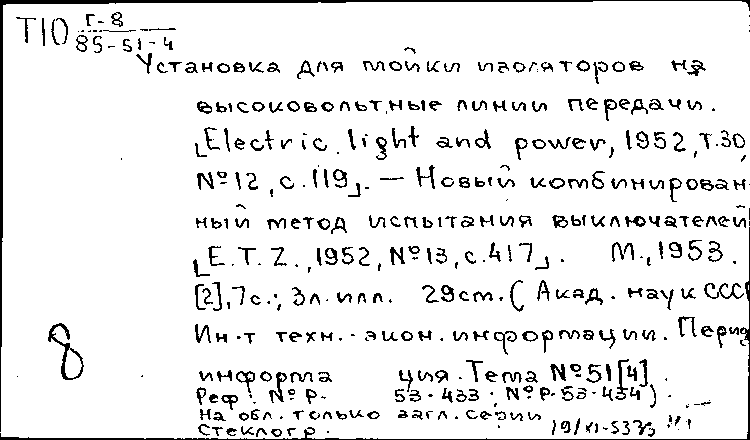 Т10 Г-8
85-51-4
Установка для мойки изоляторов на
высоковольтные линии передачи.
[Electric light and power, 1952, т.30,
№12, с.119]. — Новый комбинирован
ный метод испытания выключателей
[E.T.Z., 1952, №13, с.417]. М., 1953.
[2], 7с.; 3л. илл. 29см. (Акад. наук СССР
Ин-т техн.-экон. информации. Период
информа ция. Тема №51[4].
Реф: №Р- 53-433; №Р-53-434).
На обл. только загл. серии
Стеклогр.
8